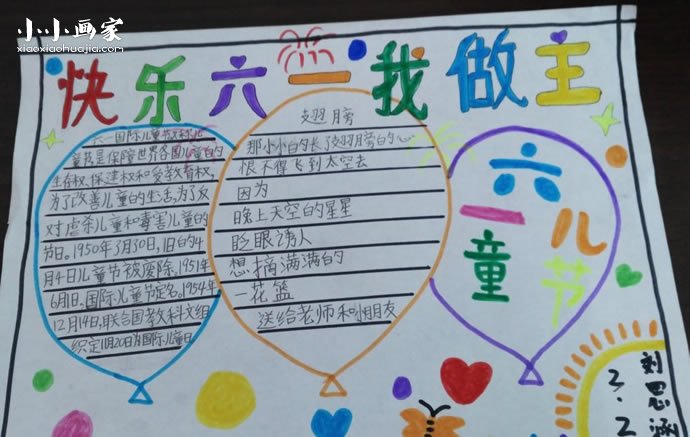 小小画家
xiaoxiaohuajia.com
快乐六一我做主
六一国际儿童节又称儿
童节是保障世界各国儿童的
生存权、保建权和受教育权,
为了改善儿童的生活,为了反
对虐杀儿童和毒害儿童的
节日。1950年3月30日,旧的4
月4日儿童节被废除。1951年
6月1日。国际儿童节定名。1954年
12月14日,联合国教科文组
织定11月20日为国际儿童日
翅膀
那小小的长了翅膀的心
恨不得飞到太空去
因为
晚上天空的星星
眨眼诱人
想摘满满的
一花篮
送给老师和小朋友
六一
儿童节
刘思涵
2.2